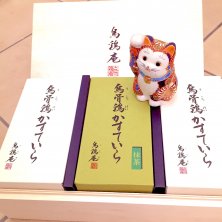 烏鶏庵
烏骨鶏
かすていら
烏鶏庵
烏骨鶏
かすていら
抹茶
烏骨鶏
かすていら
烏鶏庵